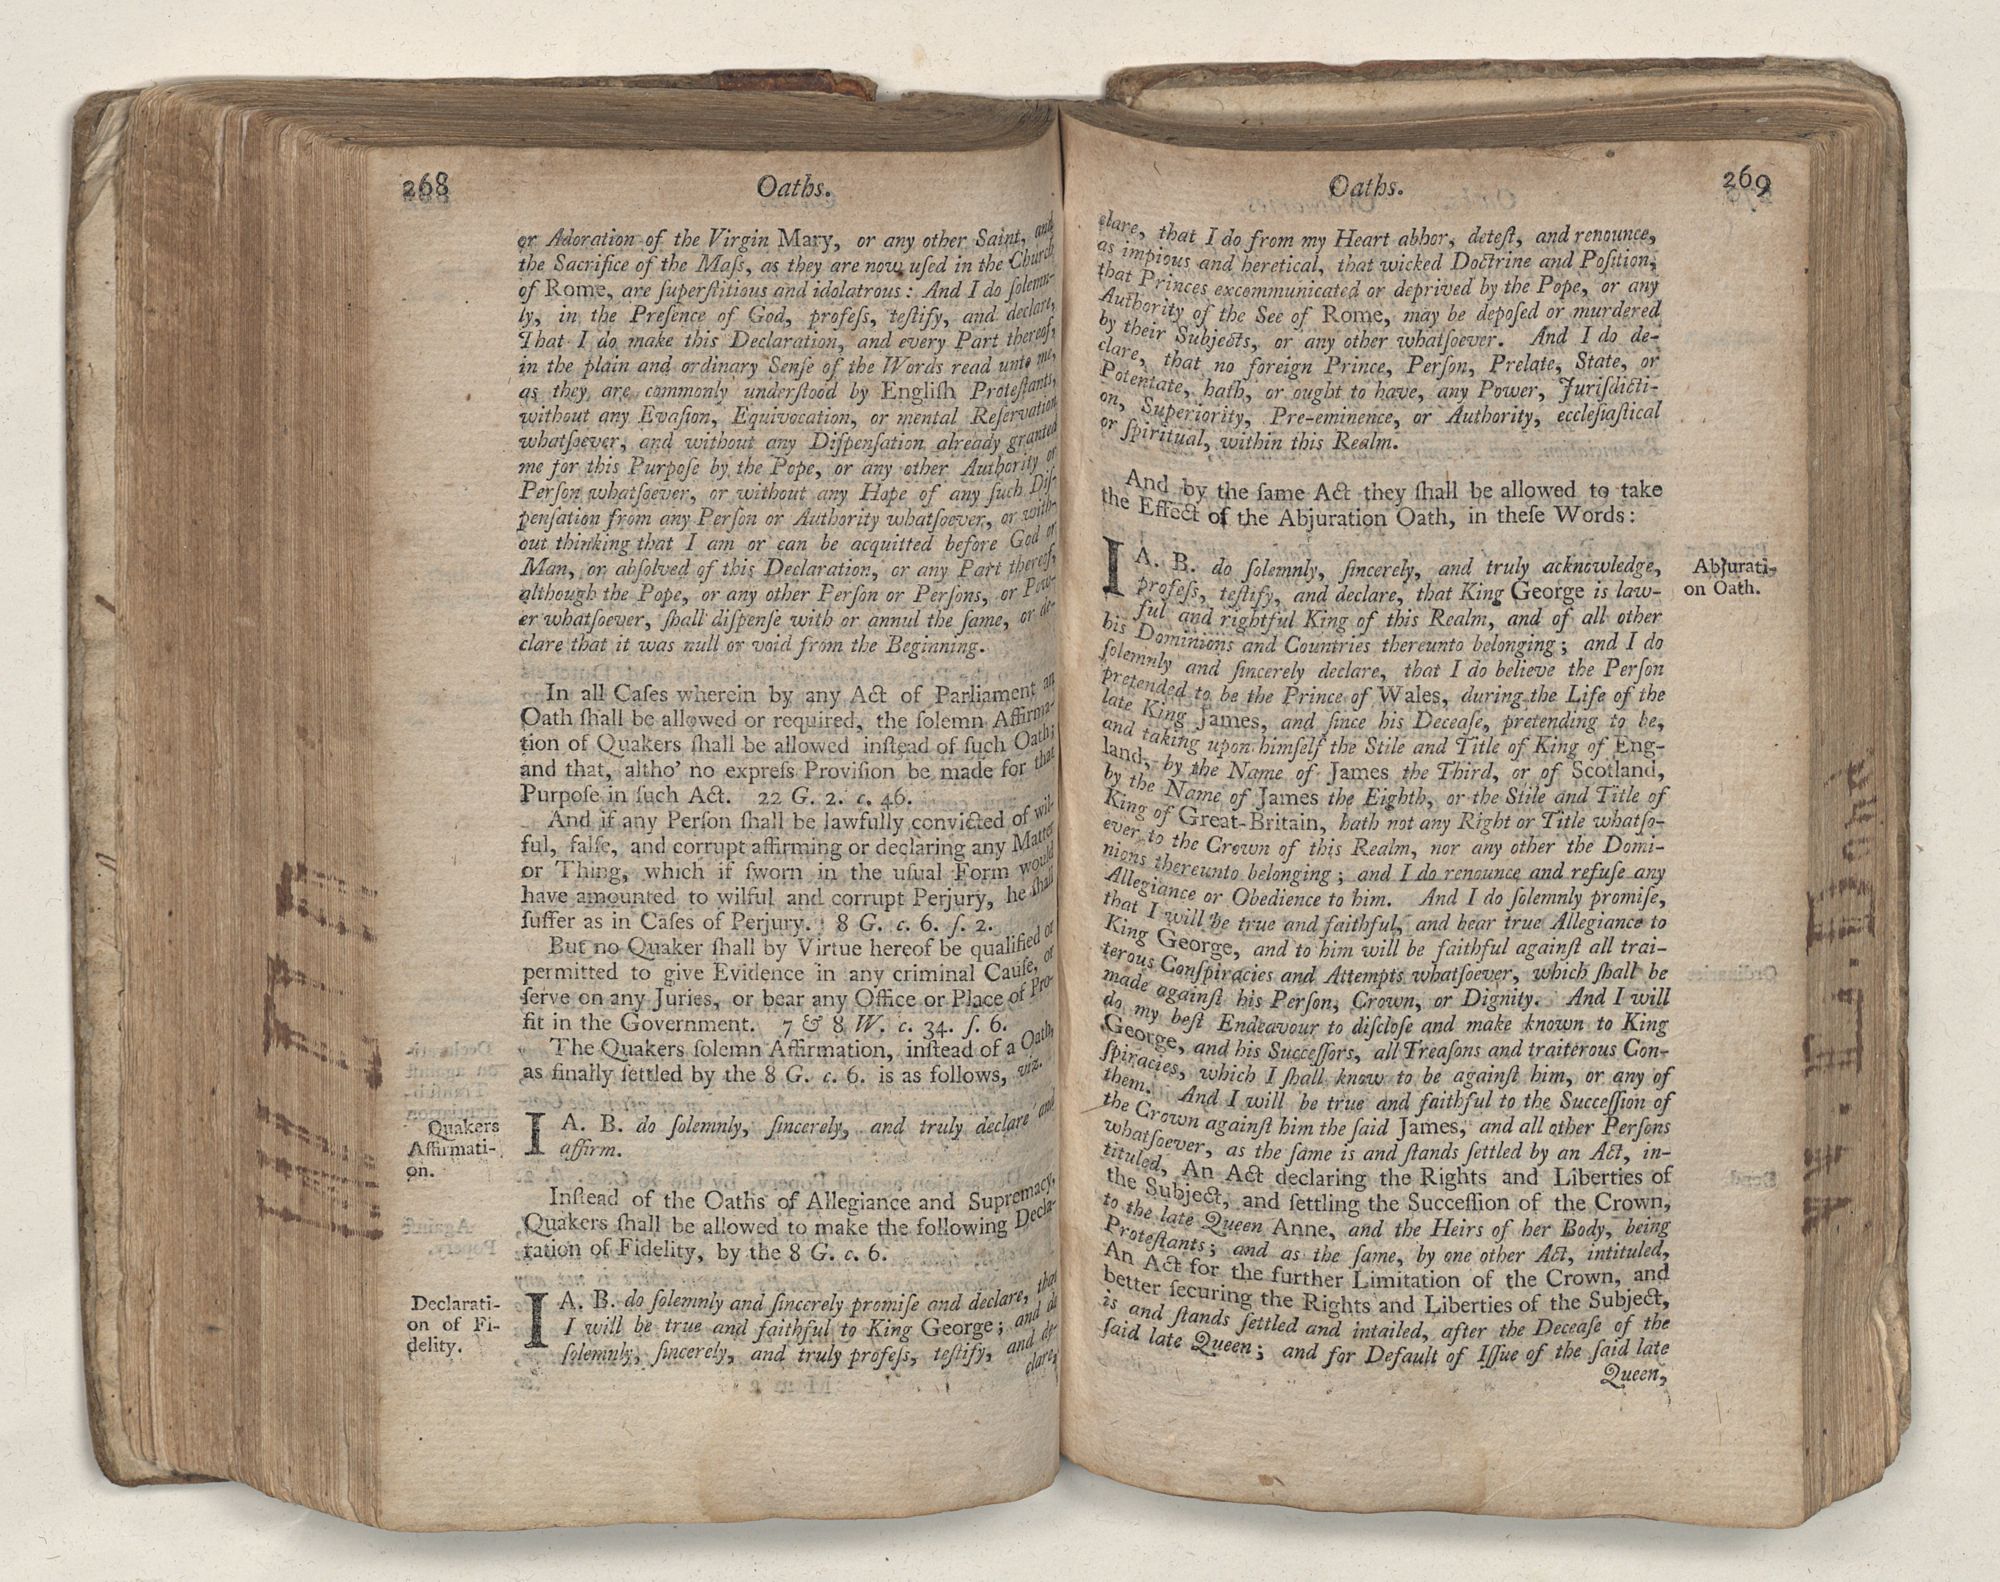 268
Oaths.
or Adoration of the Virgin Mary, or any other Saint, and
the Sacrifice of the Maſs, as they are now uſed in the Church
of Rome, are ſuperſtitious and idolatrous: And I do ſolemn-
ly, in the Preſence of God, profeſs, teſtify, and declare,
That I do make this Declaration, and every Part thereof,
in the plain and ordinary Senſe of the Words read unto me,
as they are commonly underſtood by Engliſh Proteſtants,
without any Evaſion, Equivocation, or mental Reſervation
whatſoever, and without any Diſpenſation already granted
me for this Purpoſe by the Pope, or any other Authority or
Perſon whatſoever, or without any Hope of any ſuch Diſ-
penſation from any Perſon or Authority whatſoever, or with-
out thinking that I am or can be acquitted before God or
Man, or abſolved of this Declaration, or any Part thereof,
although the Pope, or any other Perſon or Perſons, or Pow-
er whatſoever, ſhall diſpenſe with or annul the ſame, or de-
clare that it was null or void from the Beginning.
In all Caſes wherein by any Act of Parliament an
Oath ſhall be allowed or required, the ſolemn Affirma-
tion of Quakers ſhall be allowed inſtead of ſuch Oath;
and that, altho' no expreſs Proviſion be made for that
Purpoſe in ſuch Act. 22 G. 2. c. 46.
And if any Perſon ſhall be lawfully convicted of wil-
ful, falſe, and corrupt affirming or declaring any Matter
or Thing, which if ſworn in the uſual Form would
have amounted to wilful and corrupt Perjury, he ſhall
ſuffer as in Caſes of Perjury. 8 G. c. 6. ſ. 2.
But no Quaker ſhall by Virtue hereof be qualified or
permitted to give Evidence in any criminal Cauſe, or
ſerve on any Juries, or bear any Office or Place of Pro-
fit in the Government. 7 & 8 W. c. 34. ſ. 6.
The Quakers ſolemn Affirmation, inſtead of a Oath,
as finally ſettled by the 8 G. c. 6. is as follows, viz.
Quakers
Affirmati-
on.
I A. B. do ſolemnly, ſincerely, and truly declare and
affirm.
Inſtead of the Oaths of Allegiance and Supremacy,
Quakers ſhall be allowed to make the following Decla-
ration of Fidelity, by the 8 G. c. 6.
Declarati-
on of Fi-
delity.
I A. B. do ſolemnly and ſincerely promiſe and declare, that
I will be true and faithful to King George; and do
ſolemnly, ſincerely, and truly profeſs, teſtify, and de-
clare,
269
Oaths.
clare, that I do from my Heart abhor, deteſt, and renounce,
as impious and heretical, that wicked Doctrine and Poſition,
that Princes excommunicated or deprived by the Pope, or any
Authority of the See of Rome, may be depoſed or murdered
by their Subjects, or any other whatſoever. And I do de-
clare, that no foreign Prince, Perſon, Prelate, State, or
Potentate, hath, or ought to have, any Power, Juriſdicti-
on, Superiority, Pre-eminence, or Authority, eccleſiaſtical
or ſpiritual, within this Realm.
And by the ſame Act they ſhall be allowed to take
the Effect of the Abjuration Oath, in theſe Words:
Abjurati-
on Oath.
I A. B. do ſolemnly, ſincerely, and truly acknowledge,
profeſs, teſtify, and declare, that King George is law-
ful and rightful King of this Realm, and of all other
his Dominions and Countries thereunto belonging; and I do
ſolemnly and ſincerely declare, that I do believe the Perſon
pretended to be the Prince of Wales, during the Life of the
late King James, and ſince his Deceaſe, pretending to be,
and taking upon himſelf the Stile and Title of King of Eng-
land, by the Name of James the Third, or of Scotland,
by the Name of James the Eighth, or the Stile and Title of
King of Great-Britain, hath not any Right or Title whatſo-
ever to the Crown of this Realm, nor any other the Domi-
nions thereunto belonging; and I do renounce and refuſe any
Allegiance or Obedience to him. And I do ſolemnly promiſe,
that I will be true and faithful, and bear true Allegiance to
King George, and to him will be faithful againſt all trai-
terous Conſpiracies and Attempts whatſoever, which ſhall be
made againſt his Perſon, Crown, or Dignity. And I will
do my beſt Endeavour to diſcloſe and make known to King
George, and his Succeſſors, all Treaſons and traiterous Con-
ſpiracies, which I ſhall know to be againſt him, or any of
them. And I will be true and faithful to the Succeſſion of
the Crown againſt him the ſaid James, and all other Perſons
whatſoever, as the ſame is and ſtands ſettled by an Act, in-
tituled, An Act declaring the Rights and Liberties of
the Subject, and ſettling the Succeſſion of the Crown,
to the late Queen Anne, and the Heirs of her Body, being
Proteſtants; and as the ſame, by one other Act, intituled,
An Act for the further Limitation of the Crown, and
better ſecuring the Rights and Liberties of the Subject,
is and ſtands ſettled and intailed, after the Deceaſe of the
ſaid late Queen; and for Default of Iſſue of the ſaid late
Queen,